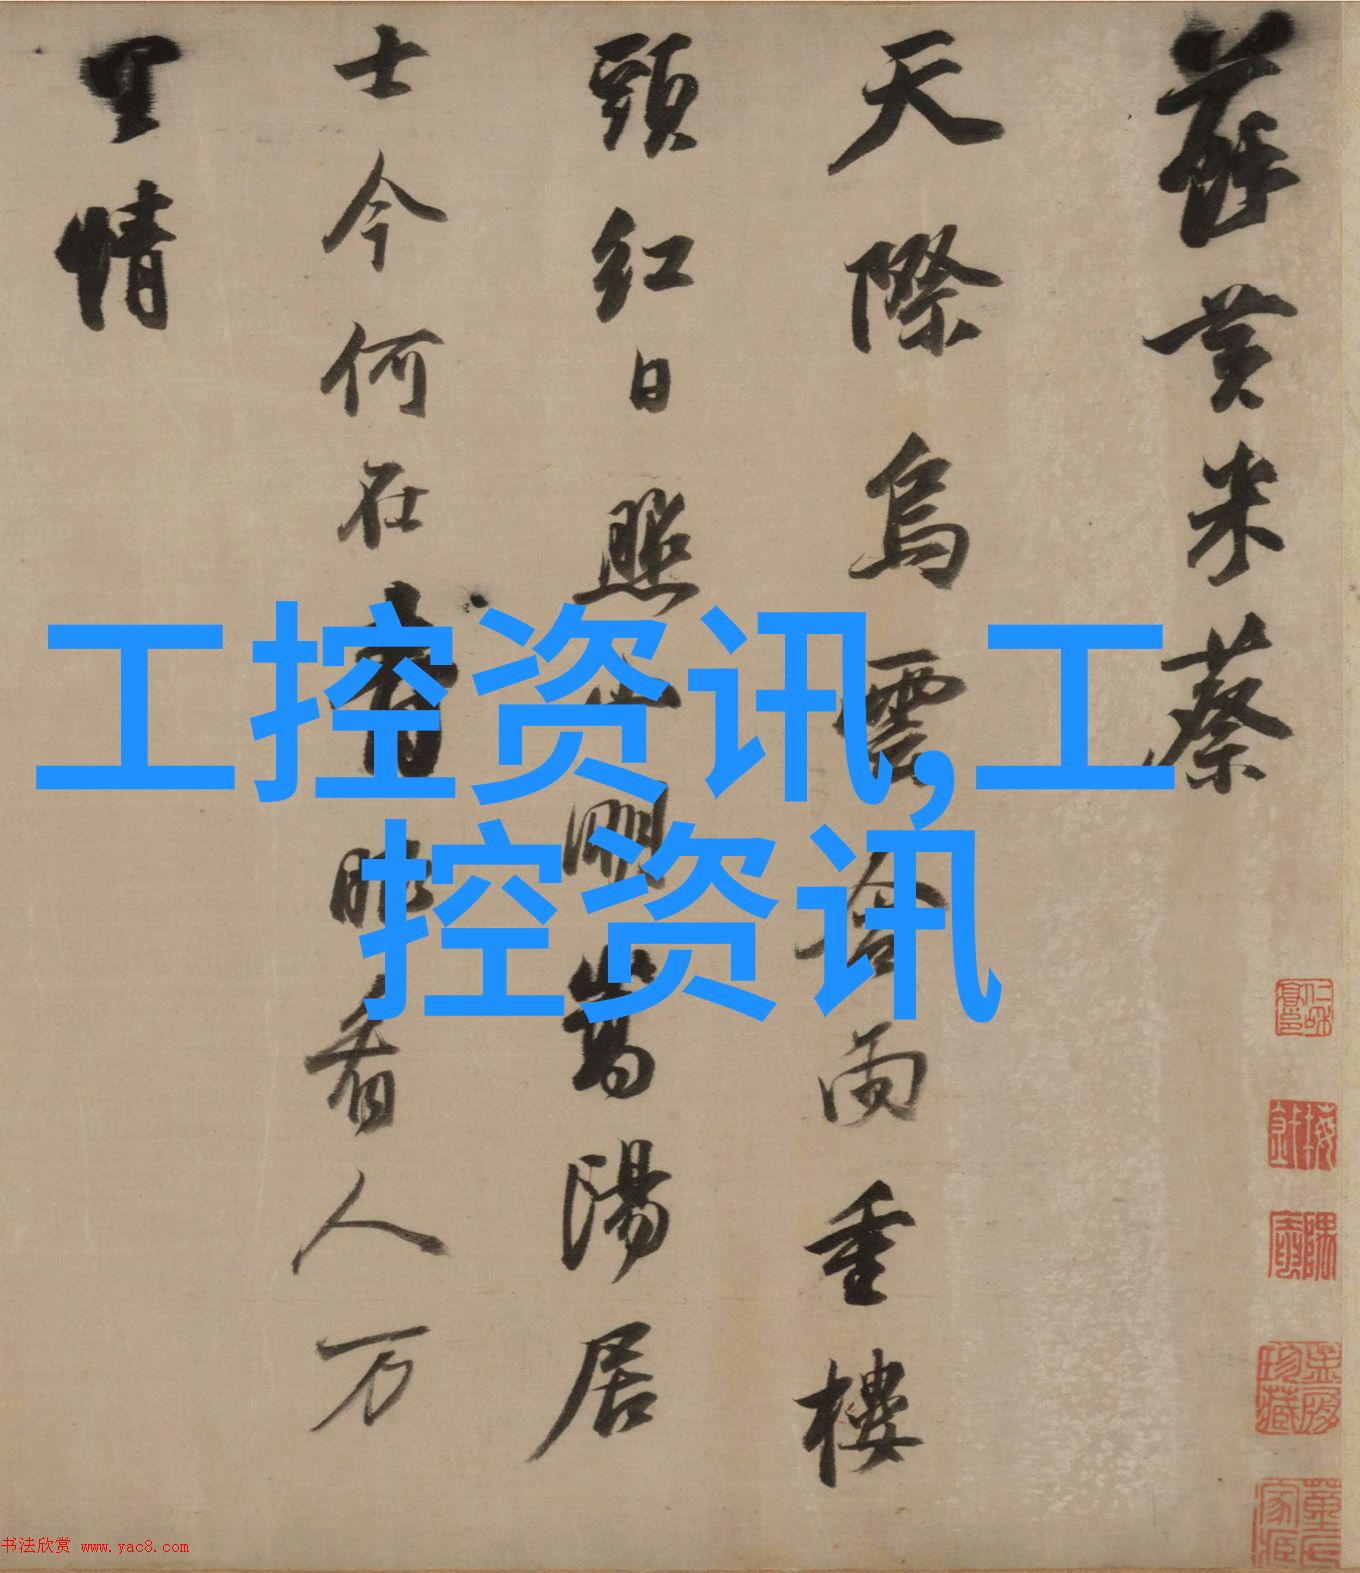 蘇黄米蔡
天際烏雲含雨重樓
頭紅日照山明嵩陽居
士今何在青眼看人万
里情
工控资讯,工
控资讯
书法欣赏 www.yac8.com